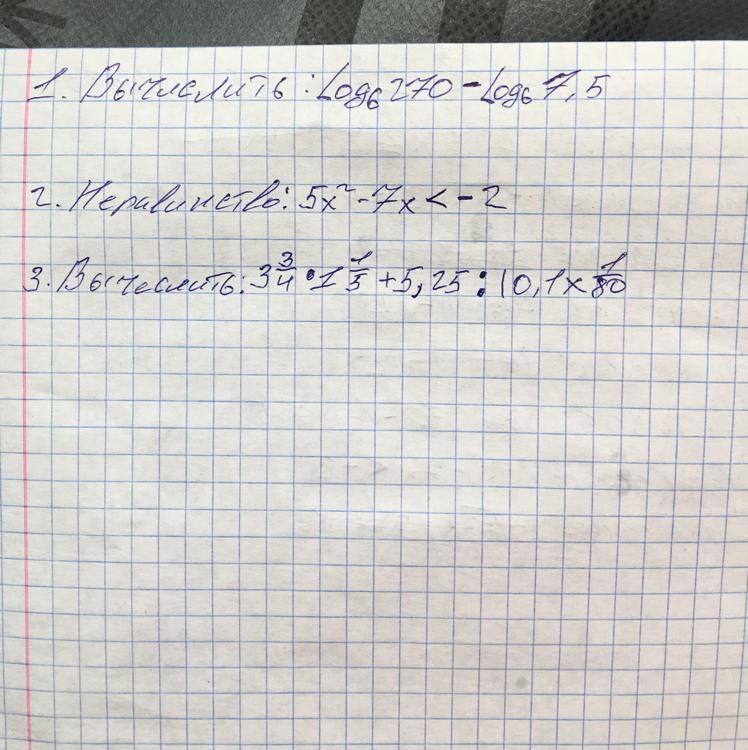 1. Вычислить: Log₆270 - Log₆7,5
2. Неравинство: 5x² - 7x < - 2
3. Вычеслить: 3 3/4 • 1 1/5 + 5,25 : 10,1 x 1/80